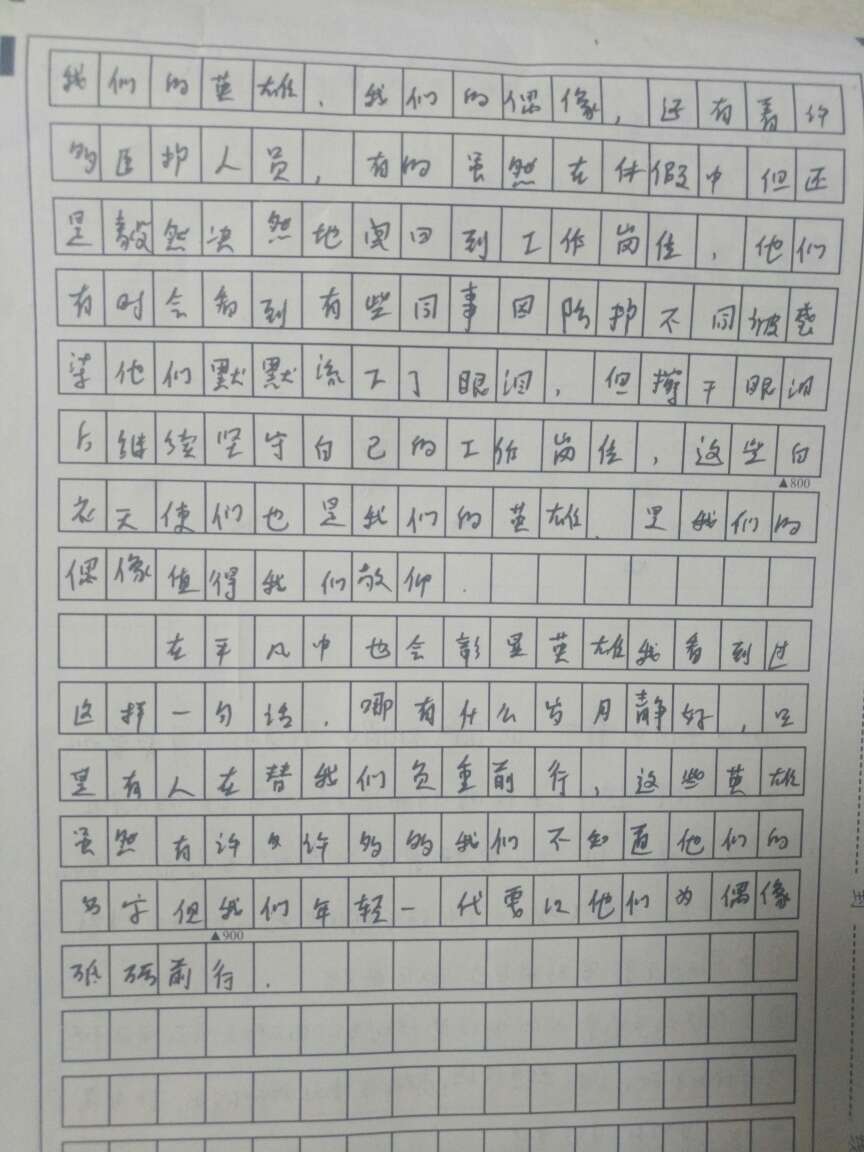 我们的英雄．我们的偶像，还有着许
多医护人员，有的虽然在休假中但还
是毅然决然地闻回到工作岗位，他们
有时会知到有些同事因防护不同被感
染他们默默流下了眼泪，但擦干眼泪
后继续坚守自己的工作岗位，这些白
▲800
衣天使们也是我们的英雄．是我们的
偶像值得我们敬仰．
在平凡中也会彰显英雄我看到过
这样一句话，哪有什么岁月静好，只
是有人在替我们负重前行，这些英雄
虽然有许多许多的我们不知道他们的
名字但我们年轻一代要以他们为偶像
▲900
砥砺前行．